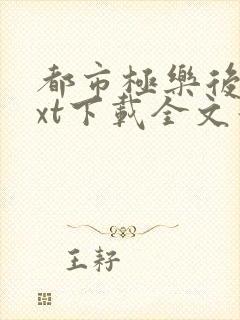 都市極樂後
xt下載全文
王耔